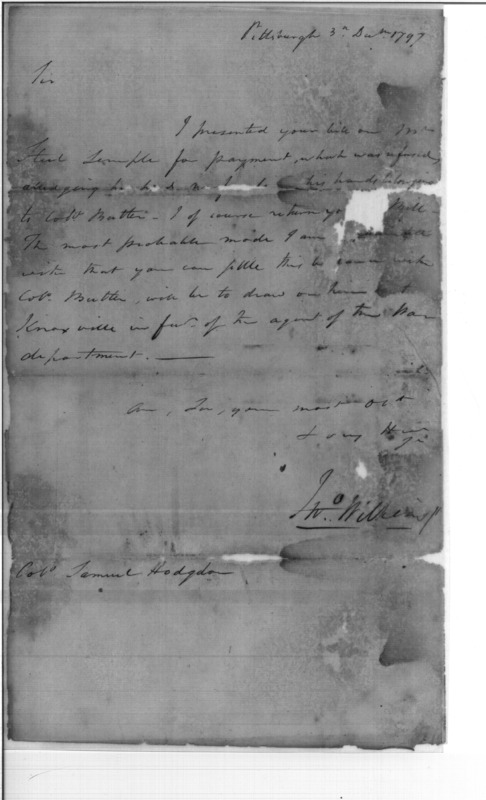 Pittsburgh 3d Decr 1797
Sir
I presented your bill on Mr
Steel Semple for payment, which was refused,
alledging he his hands
to Colo. Butler - I of course return you Bill -
The most probable mode I am
with that you can settle this with
Colo. Butler, will be to draw on him at
Knoxville in favr. of the agent of the War
department. —
am, Sir, your most Obt
& very
Jno Wilkins
Colo. Samuel Hodgdon